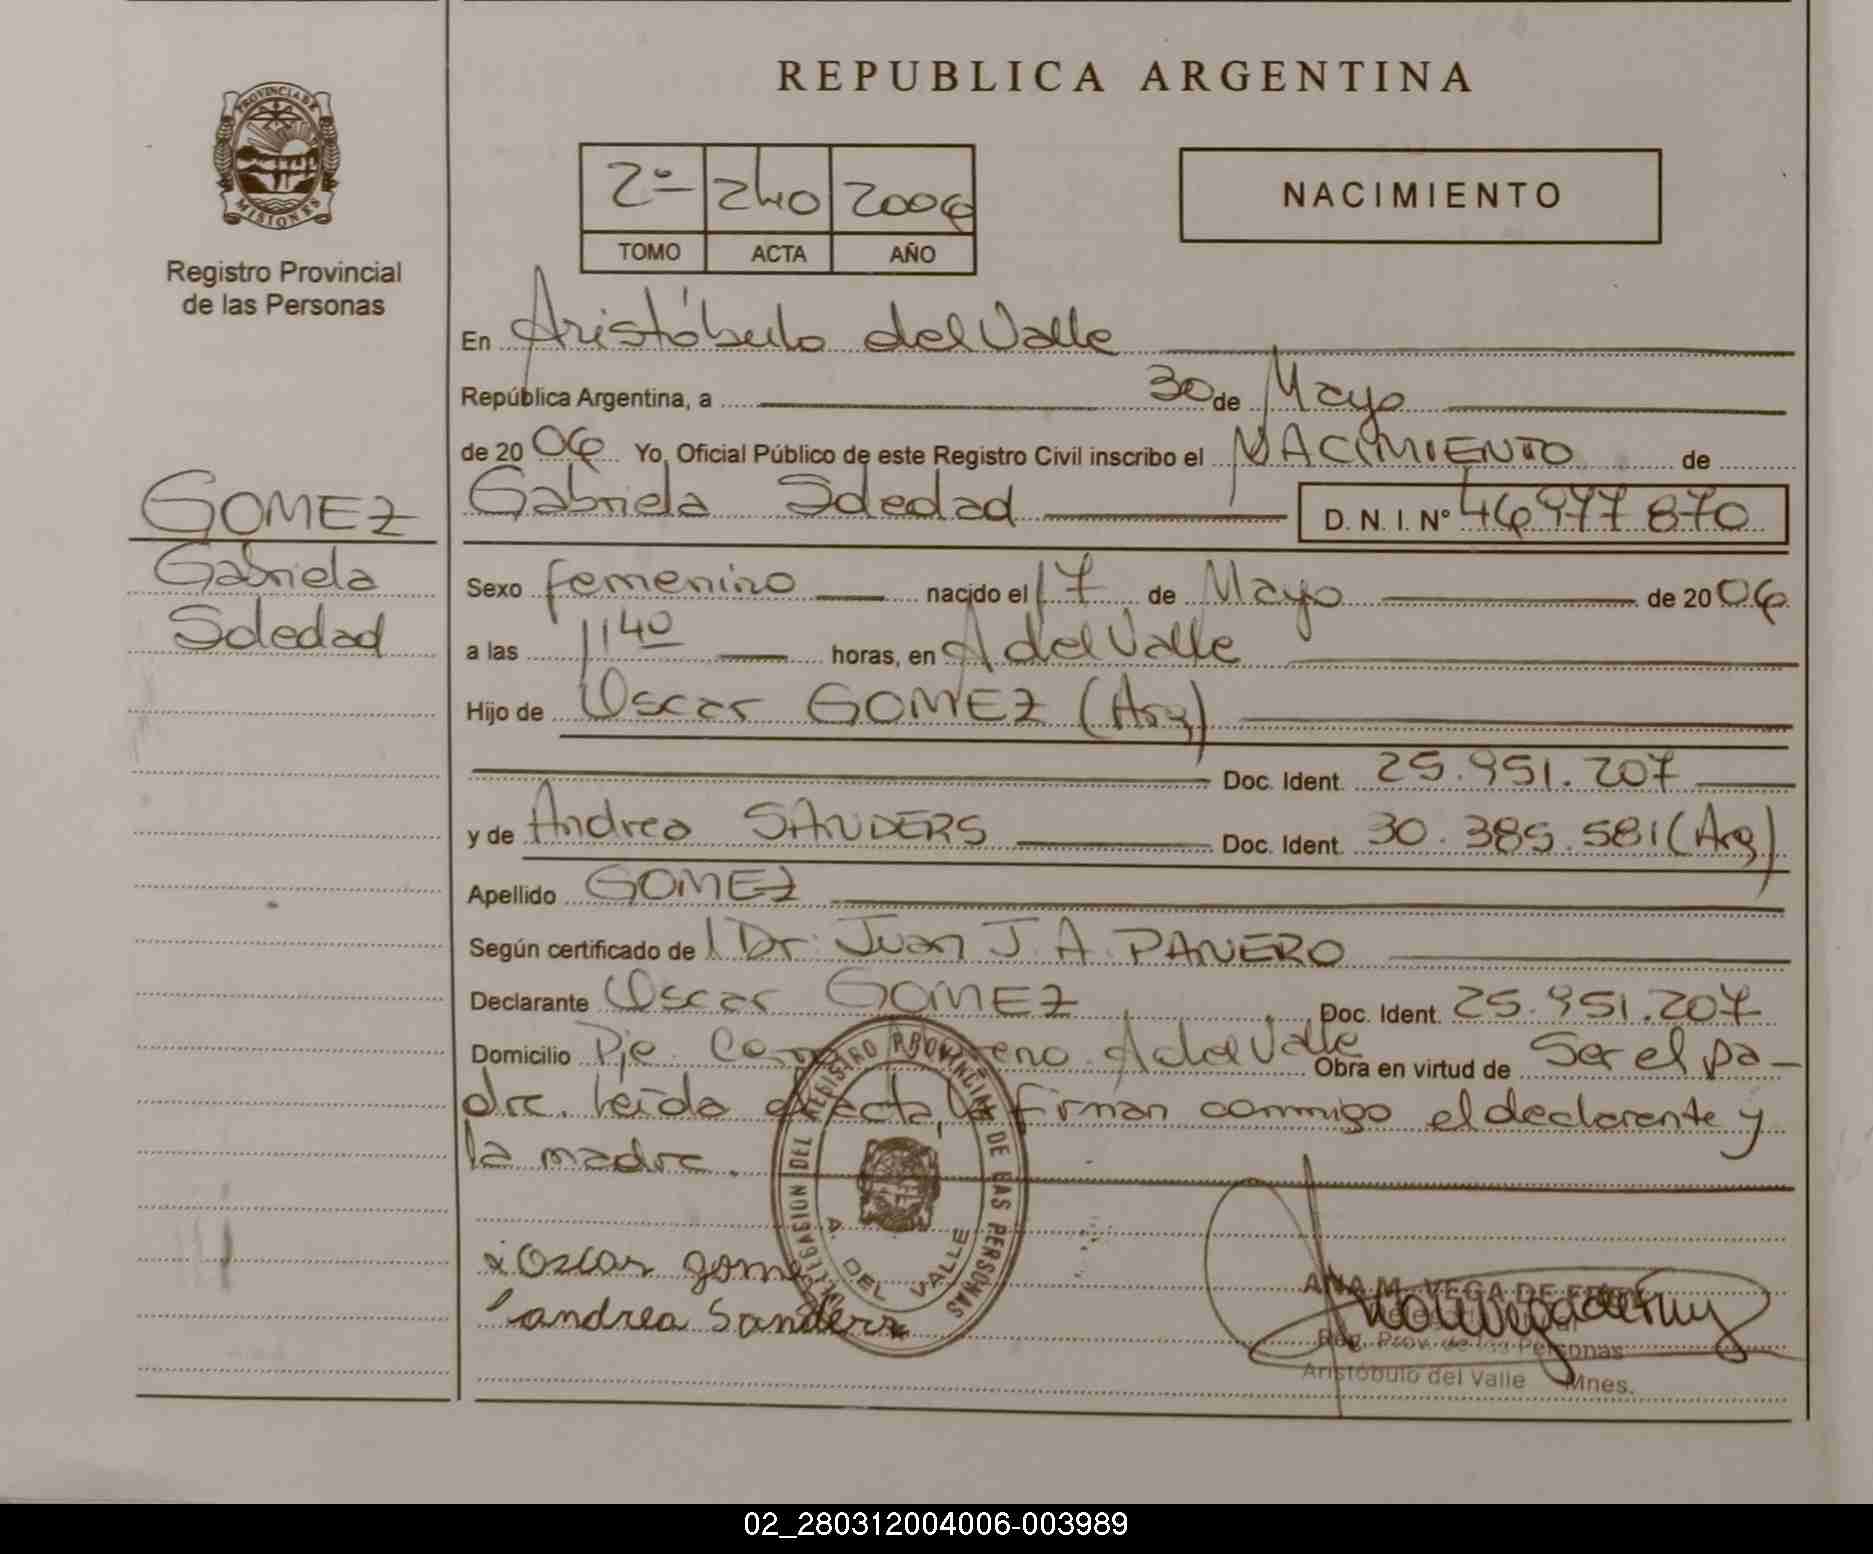 REPUBLICA ARGENTINA
PROVINCIA DE MISIONES
Registro Provincial
de las Personas
2º 240 2006
TOMO ACTA AÑO
NACIMIENTO
En Aristóbulo del Valle
República Argentina, a 30 de Mayo
de 2006 Yo, Oficial Público de este Registro Civil inscribo el NACIMIENTO de
GOMEZ
Gabriela Soledad D. N. I. Nº 46977870
Gabriela
Soledad
Sexo femenino nacido el 17 de Mayo de 2006
a las 11 40 horas, en A del Valle
Hijo de Oscar GOMEZ (Arg)
Doc. Ident. 25.951.207
y de Andrea SANDERS Doc. Ident. 30.385.581 (Arg)
Apellido GOMEZ
Según certificado de Dr. Juan J. A. PANERO
Declarante Oscar GOMEZ Doc. Ident. 25.951.207
Domicilio Pje. A del Valle Obra en virtud de Ser el pa-
dre. leída el acta, la firman conmigo el declarante y
la madre.
DELEGACION DEL REGISTRO PROVINCIAL DE LAS PERSONAS
A. DEL VALLE
Oscar gomez
andrea Sanders
ANA M. VEGA DE
Reg. Prov. de las Personas
Aristóbulo del Valle Mnes.
02_280312004006-003989